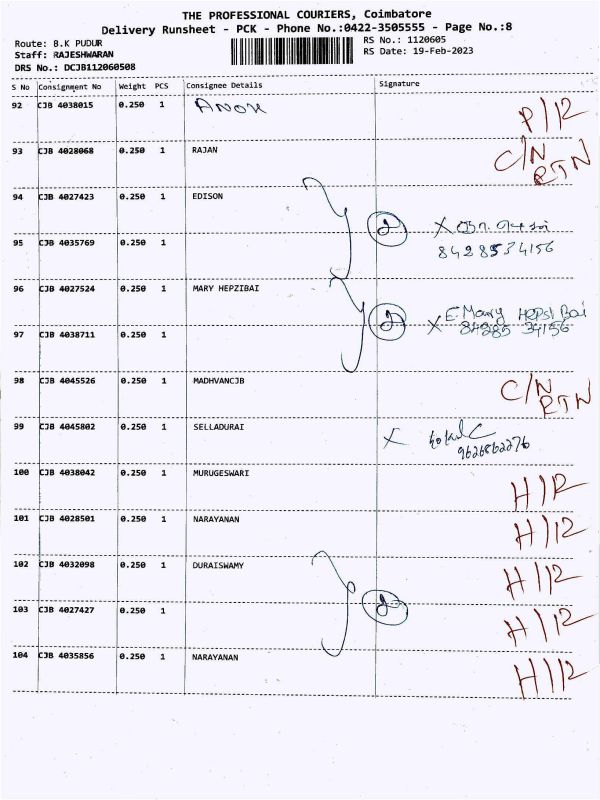 THE PROFESSIONAL COURIERS, Coimbatore
Delivery Runsheet - PCK - Phone No.:0422-3505555 - Page No.:8
Route: B.K PUDUR
RS No.: 1120605
Staff: RAJESHWARAN
RS Date: 19-Feb-2023
DRS No.: DCJB112060508
S No Consignment No Weight PCS Consignee Details Signature
92 CJB 4038015 0.250 1 P/R
93 CJB 4028068 0.250 1 RAJAN C/N
RTN
94 CJB 4027423 0.250 1 EDISON
2 X
95 CJB 4035769 0.250 1 8428534156
96 CJB 4027524 0.250 1 MARY HEPZIBAI
2 X E. Mary Hepsi Bai
97 CJB 4038711 0.250 1 84285 34156
98 CJB 4045526 0.250 1 MADHVANCJB C/N
RTN
99 CJB 4045802 0.250 1 SELLADURAI X
9626862276
100 CJB 4038042 0.250 1 MURUGESWARI H/R
101 CJB 4028501 0.250 1 NARAYANAN H/R
102 CJB 4032098 0.250 1 DURAISWAMY H/R
2
103 CJB 4027427 0.250 1 H/R
104 CJB 4035856 0.250 1 NARAYANAN H/R